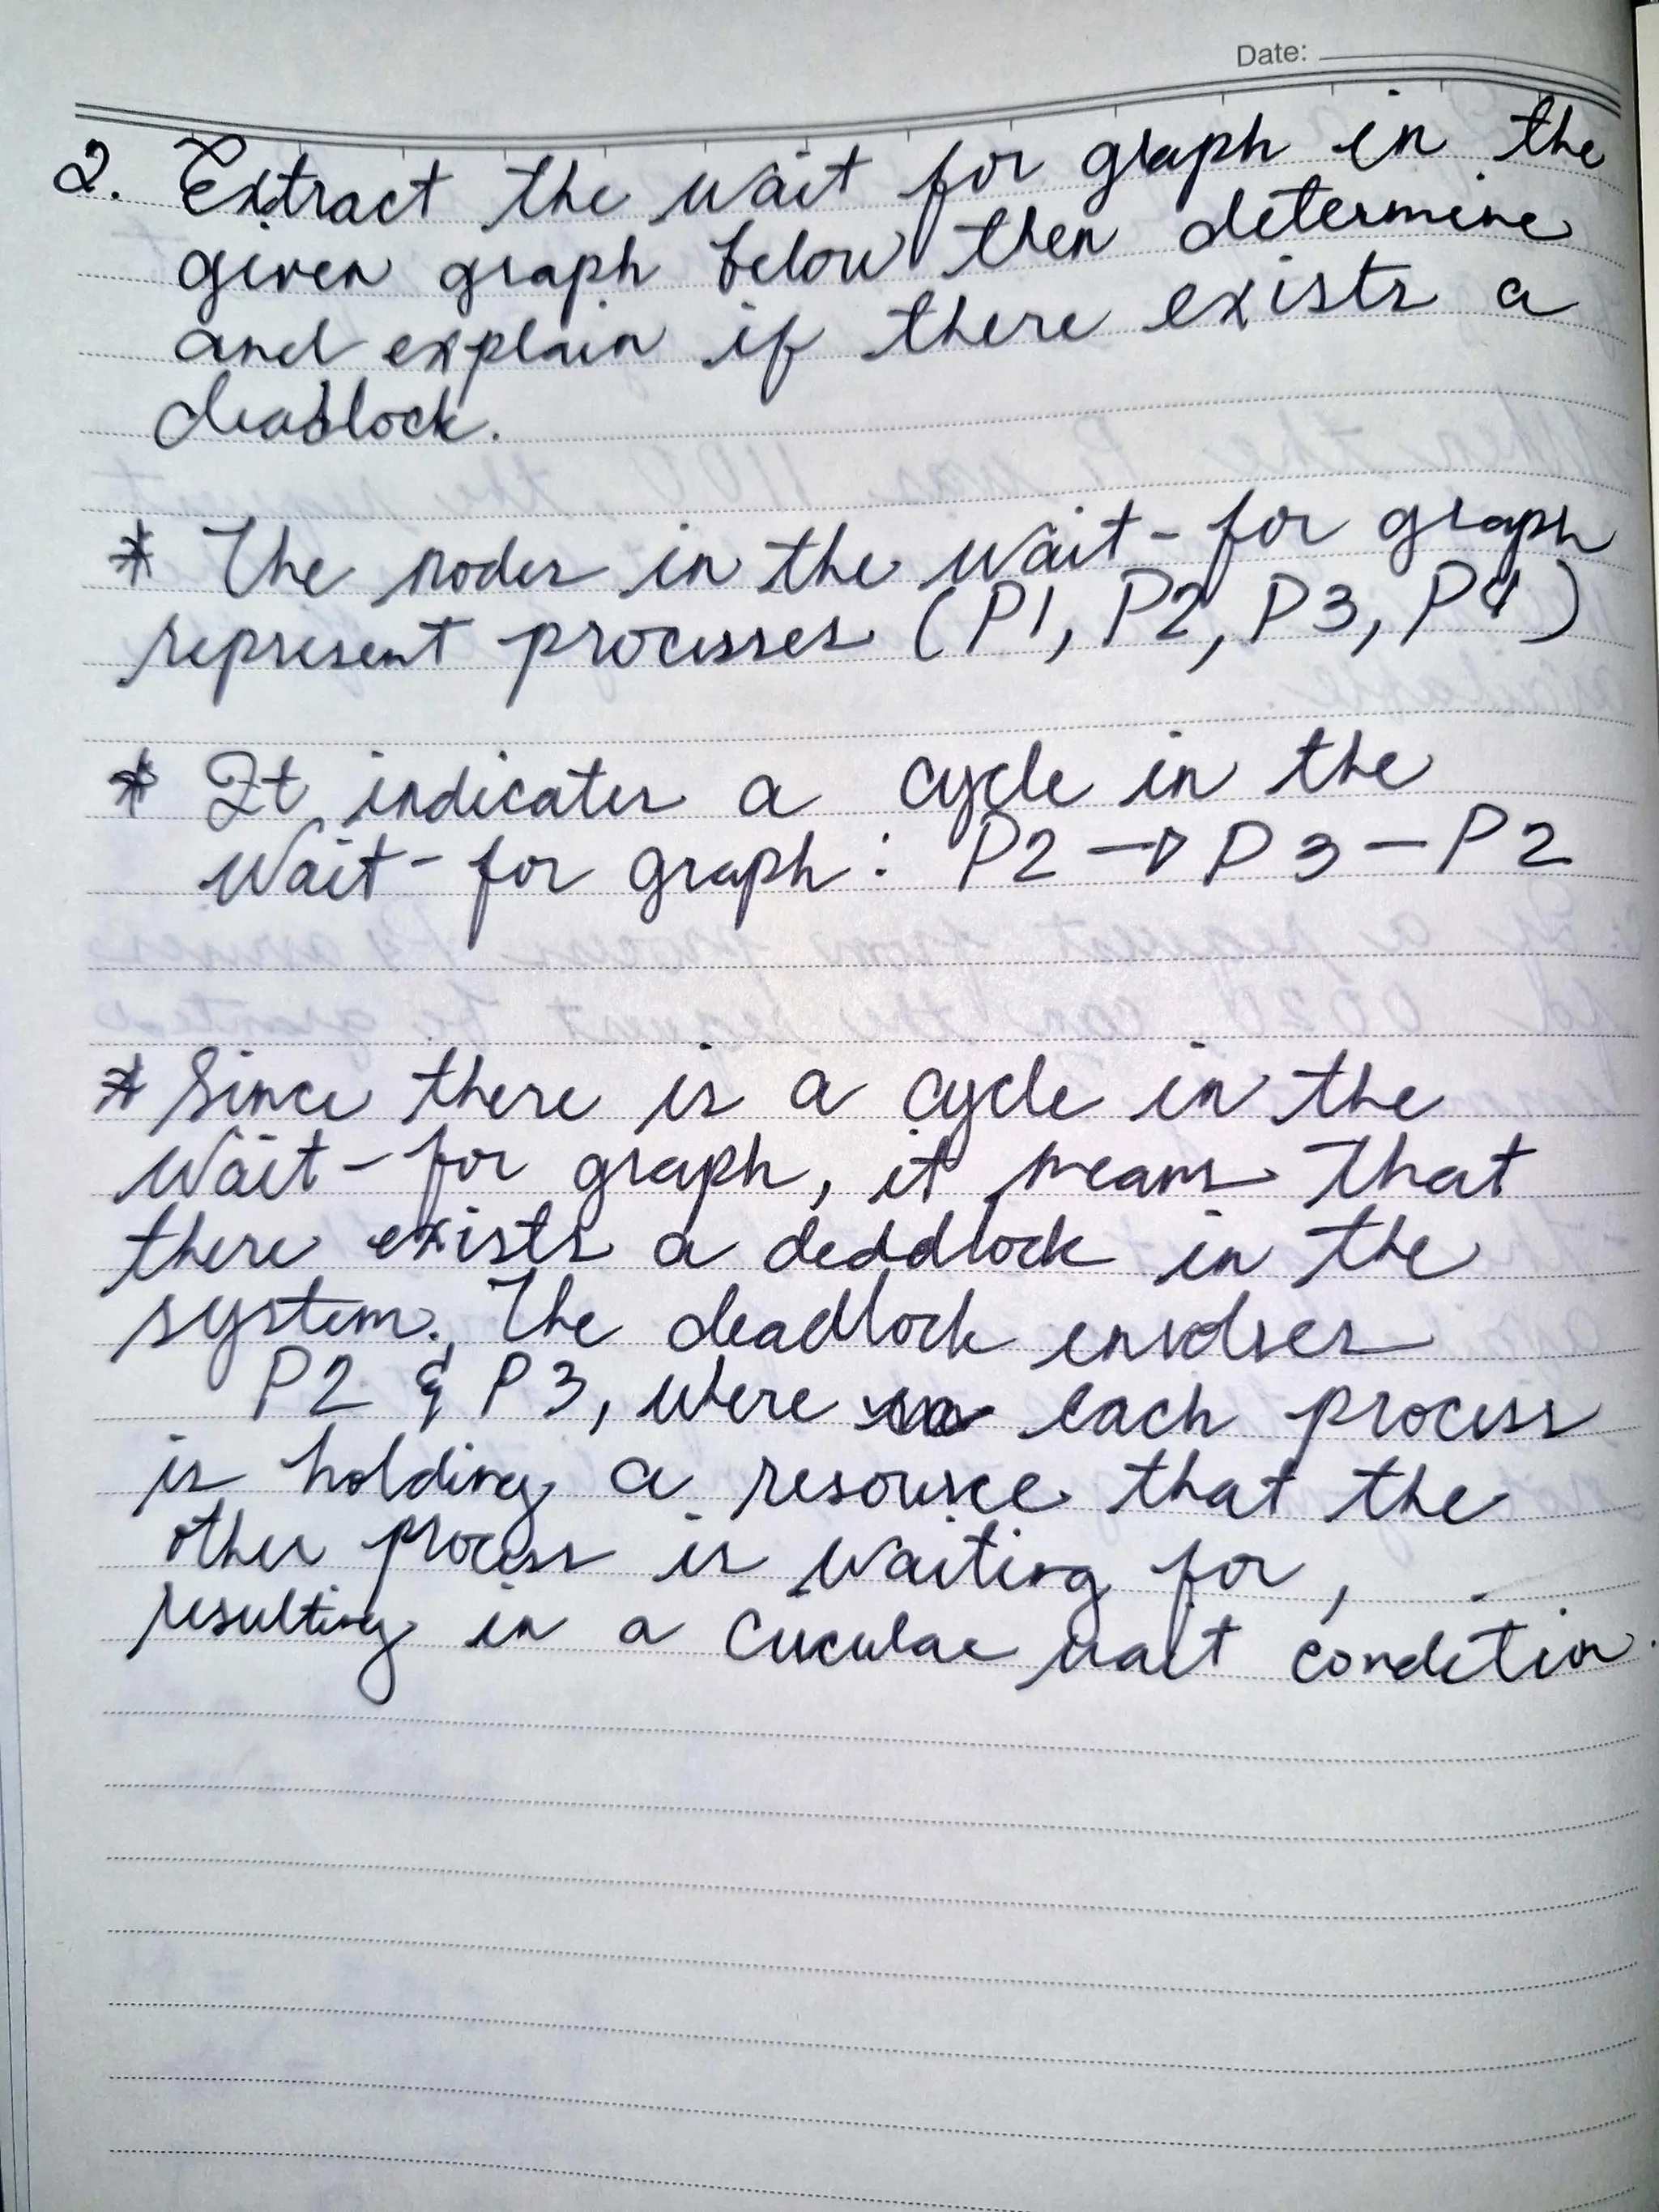 Date:
2. Extract the wait for graph in the
given graph below then determine
and explain if there exists a
deadlock.
* The nodes in the wait-for graph
represent processes (P1, P2, P3, P4)
* It indicates a cycle in the
Wait-for graph: P2 → P3 - P2
* Since there is a cycle in the
Wait-for graph, it means that
there exists a deddlock in the
system. The deadlock envolves
P2 & P3, were each process
is holding a resource that the
other process is waiting for,
resulting in a circular wait condition.